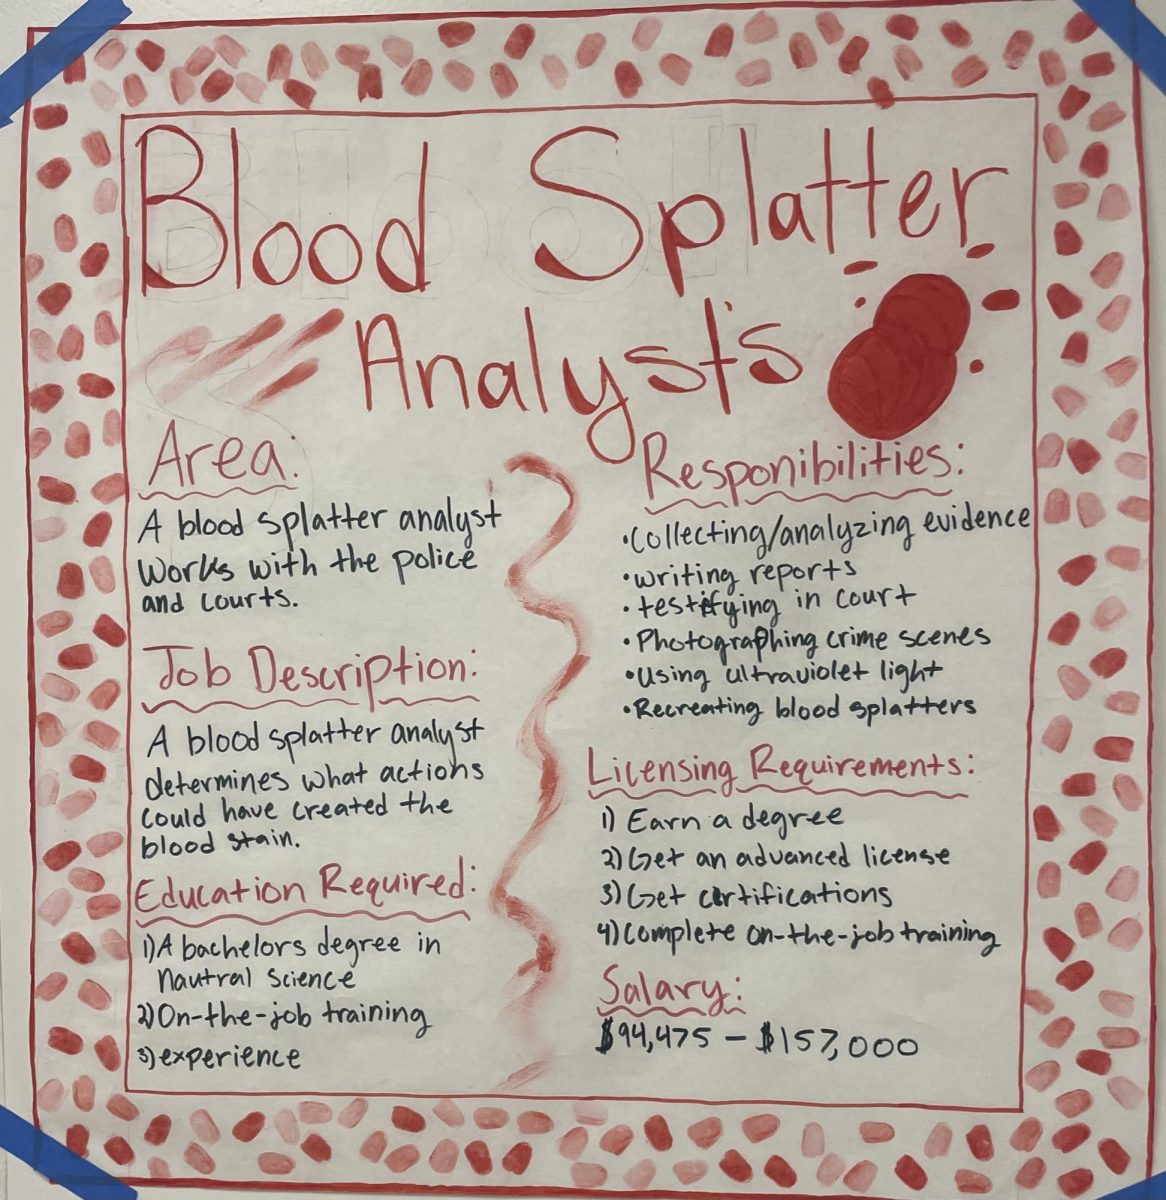 Blood Splatter
Analyst's
Area:
A blood splatter analyst
works with the police
and courts.
Job Description:
A blood splatter analyst
determines what actions
could have created the
blood stain.
Education Required:
1) A bachelors degree in
nautral science
2) On-the-job training
3) experience
Responibilities:
• Collecting/analyzing evidence
• writing reports
• testifying in court
• Photographing crime scenes
• Using ultraviolet light
• Recreating blood splatters
Licensing Requirements:
1) Earn a degree
2) Get an advanced license
3) Get certifications
4) Complete on-the-job training
Salary:
$94,475 – $157,000